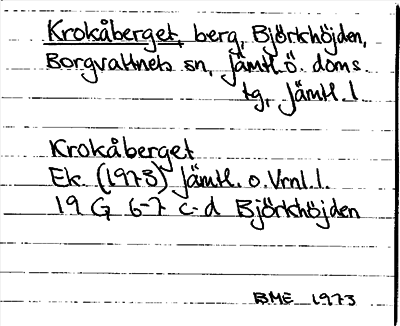 Krokåberget, berg, Björkhöjden,
Borgvattnets sn, Jämtl.ö. doms.
tg, Jämtl. l.
Krokåberget
Ek. (1973) Jämtl. o. Vrnl. l.
19 G 6-7 c-d Björkhöjden
BME 1973